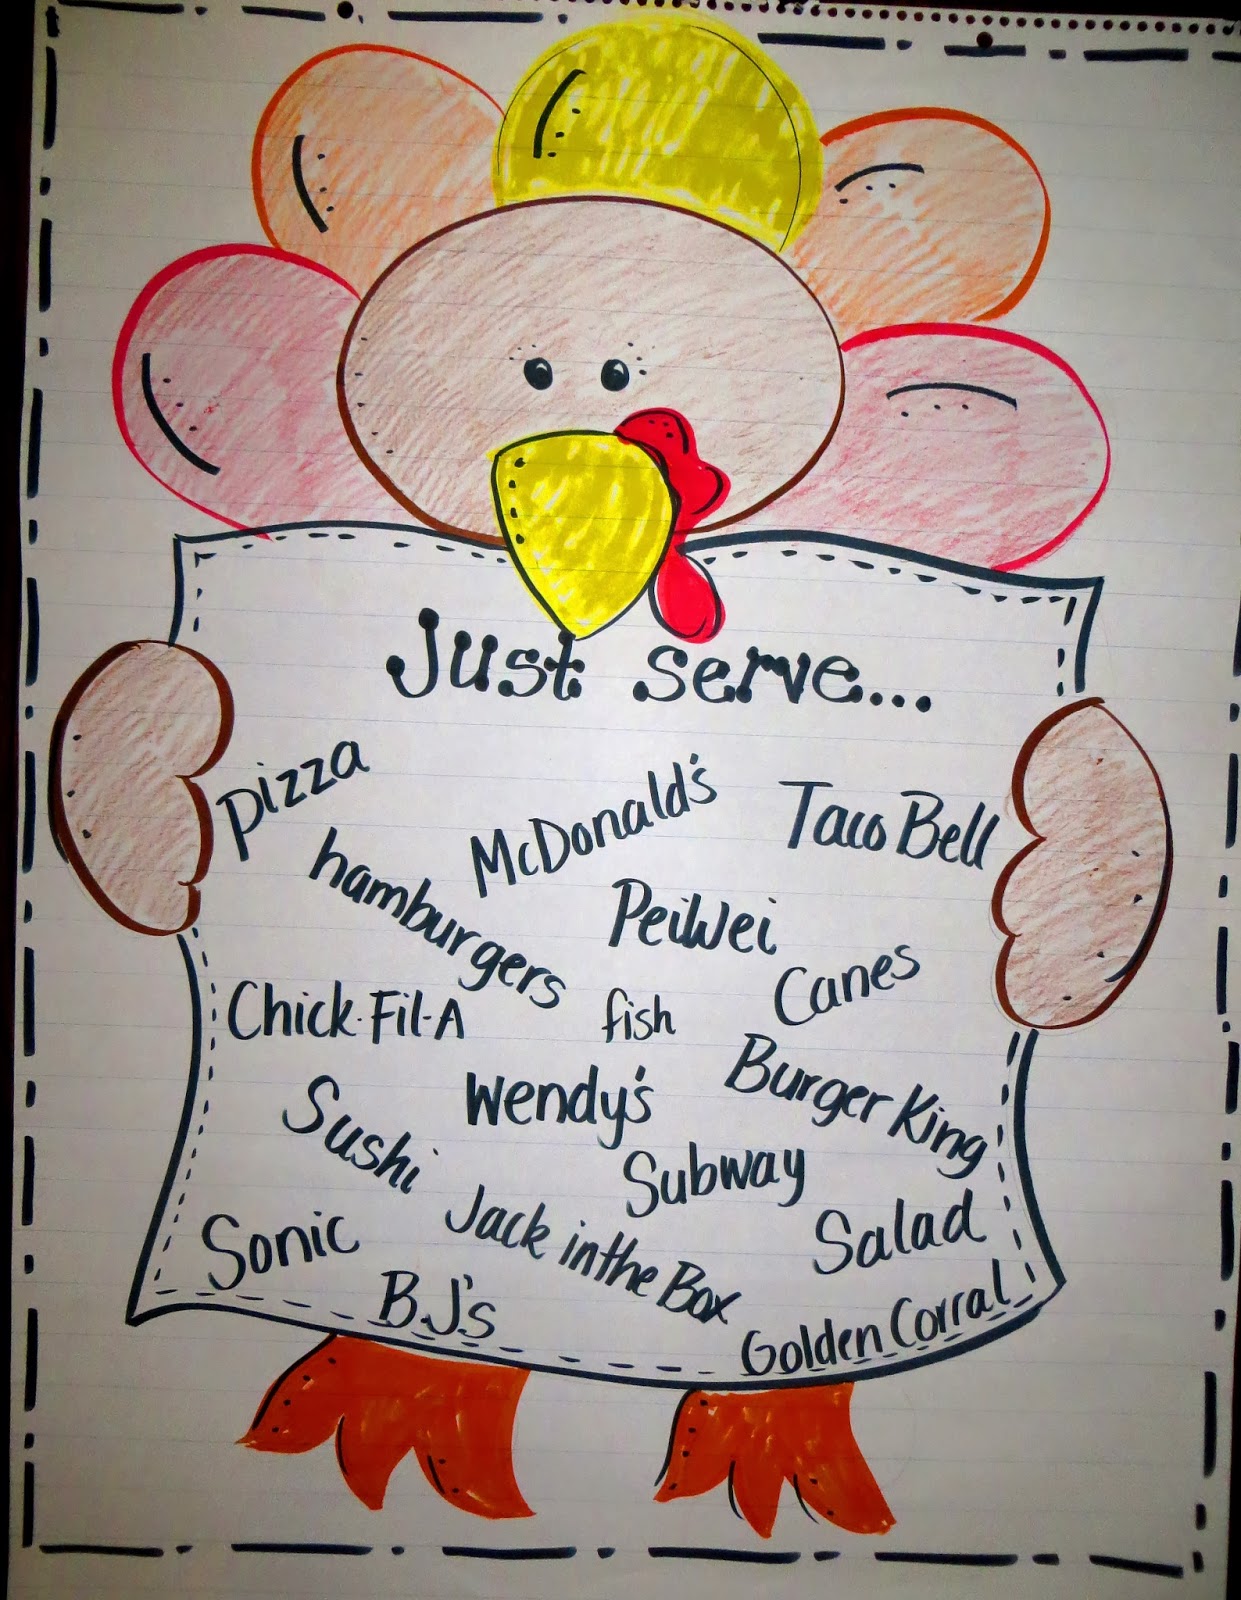 Just serve...
pizza
McDonald's
Taco Bell
hamburgers
PeiWei
Canes
Chick-Fil-A
fish
Burger King
Wendy's
Sushi
Subway
Salad
Sonic
Jack in the Box
BJ's
Golden Corral